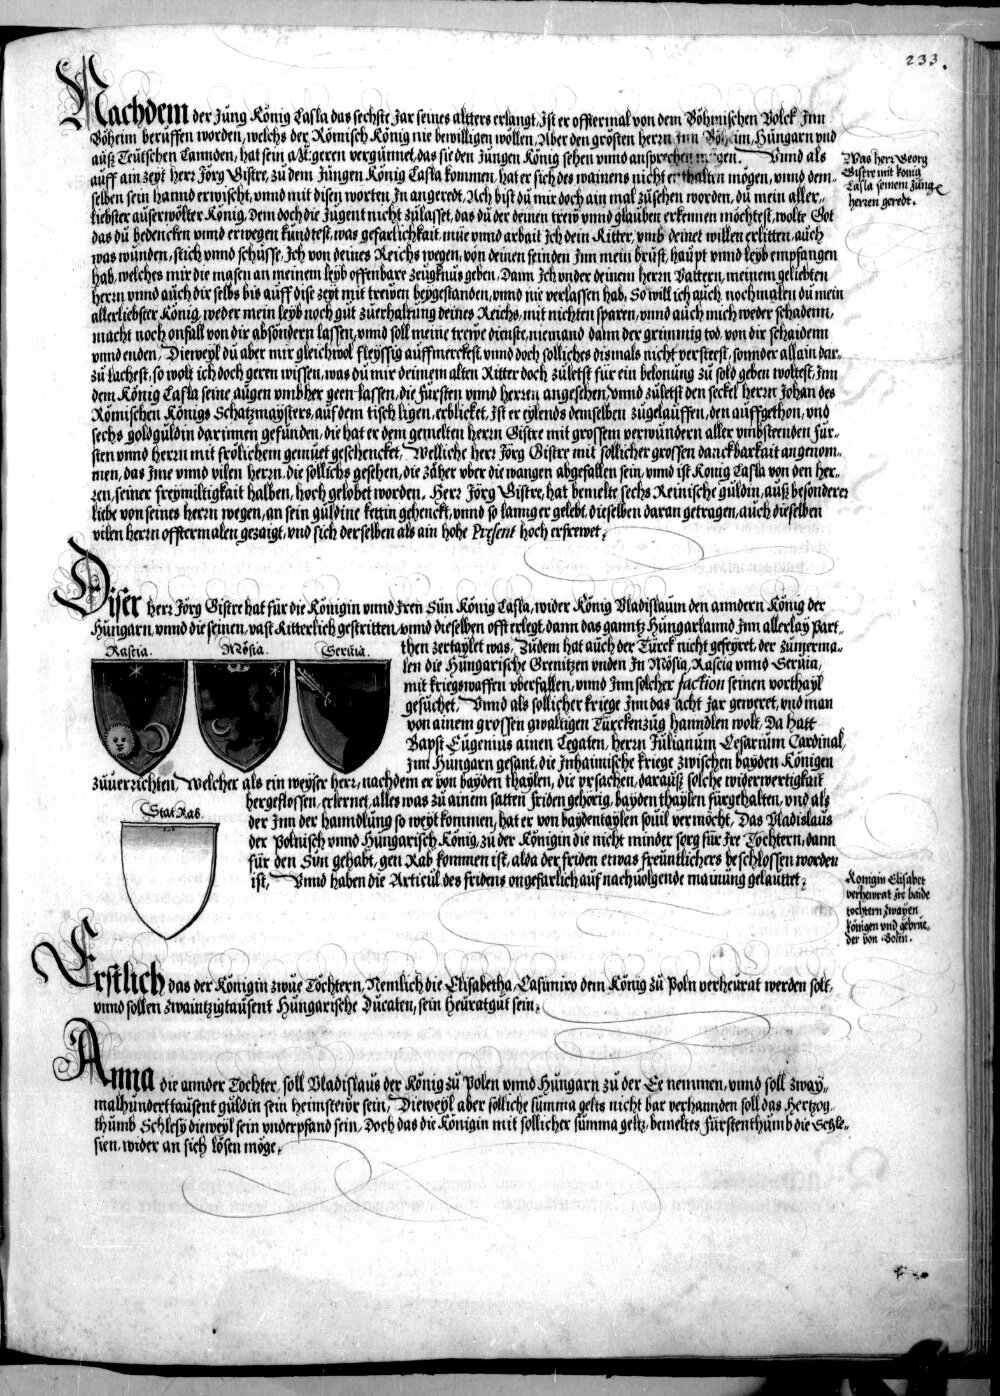 233.
Nachdem der Jung König Lasla das sechste Jar seines altters erlangt, Ist er offtermal von dem Böhmischen Volck Inn
Böheim beruffen worden, welchs der Römisch König nie bewilligen wöllen, Aber den grösten herrn Inn Böheim, Hungarn vnd
auß Teutschen Lannden, hat sein gern vergünnet, das sie den Jungen König sehen vnnd ansprechen mügen. Vnnd als
auff ain zeyt herr Jörg Gistre, zu dem Jungen König Lasla kommen, hat er sich des wainens nicht enthalten mögen, vnnd dem-
selben sein hannd erwischt, vnnd mit disen worten In angeredt, Ach bist du mir doch ain mal zusehen worden, du mein aller-
liebster auserwölter König, Dem doch die Jugent nicht zulasset, das du der deinen trew vnnd glauben erkennen möchtest, wolte Got
das du bedencken vnnd erwegen kundtest, was gefarlichkait, müe vnnd arbait Ich dein Ritter, vmb deinet willen erlitten, auch
was wunden, stich vnnd schüsse, Ich von deines Reichs wegen, von deinen feinden Inn mein brust, haupt vnnd leyb empfangen
hab, welches mir die masen an meinem leyb offenbare zeugknus geben, Dann Ich vnder deinem herrn Vattern, meinem geliebten
herrn vnnd auch dir selbs bis auff dise zeyt mit trewen beygestanden, vnnd nie verlassen hab, So will ich auch nochmalen du mein
allerliebster König, weder mein leyb noch gut zuerhaltung deines Reichs, mit nichten sparen, vnnd auch mich weder schadenn,
macht noch onfall von dir absöndern lassen, vnnd soll meine trewe dienste, niemand dann der grimmig tod, von dir schaidenn
vnnd enden, Dieweyl du aber mir gleichwol fleyssig auffmerckest, vnnd doch solliches dismals nicht versteest, sonnder allain dar-
zu lachest, so wolt ich doch geren wissen, was du mir deinem alten Ritter doch zuletst für ein belonung zu sold geben woltest, Inn
dem König Lasla seine augen vmbher geen lassen, die Fürsten vnnd herren angesehen, vnnd zuletst den seckel herrn Johan des
Römischen Königs Schatzmaysters, auf dem tisch ligen, erblicket, Ist er eylends demselben zugelauffen, den auffgethon, vnd
sechs goldguldin darinnen gefunden, die hat er dem gemelten herrn Gistre mit grossem verwundern aller vmbsteenden Für-
sten vnnd herrn mit frölichem gemüet geschencket, Welliche herr Jörg Gistre mit sollicher grossen danckbarkait angenom-
men, das Ime vnnd vilen herrn, die sollichs gesehen, die zäher vber die wangen abgefallen sein, vnnd ist König Lasla von den her-
ren, seiner freymiltigkait halben, hoch gelobet worden, Herr Jörg Gistre, hat bemelte sechs Reinische guldin, auß besonderer
liebe von seines herrn wegen, an sein guldine kettin gehenckt, vnnd so lanng er gelebt, dieselben daran getragen, auch dieselben
vilen herrn offtermalen gezaigt, vnd sich derselben als ain hohe Present hoch erfrewet.
Was herr Georg
Gistre mit König
Lasla seinem Junge
herren geredt.
Diser herr Jörg Gistre hat für die Königin vnnd Iren Sun König Lasla, wider König Vladislaum den anndern König der
Hungarn, vnnd die seinen, vast Ritterlich gestritten, vnnd dieselben offt erlegt, dann das ganntz Hungarlannd Inn allerlay Part-
Rascia. Mösia. Seruia.
then zertaylet was, Zudem hat auch der Turck nicht gefeyret, der zumerma-
len die Hungarische Grenitzen vnden In Mösia, Rascia vnnd Seruia,
mit kriegswaffen vberfallen, vnnd Inn solcher faction seinen vorthayl
gesuchet, Vnnd als sollicher kriege Inn das acht Jar geweret, vnd man
von ainem grossen gwaltigen Türckenzug hanndlen wolt, Da hatt
Bapst Eugenius ainen Legaten, herrn Julianum Cesarium Cardinal,
Inn Hungarn gesant, die Inhaimische kriege zwischen bayden Königen
zuuerrichten, Welcher als ein weyser herr, nachdem er von bayden thaylen, die vrsachen, darauß solche widerwertigkait
Stat Rab.
hergeflossen, erlernet, alles was zu ainem satten friden gehörig, bayden thaylen fürgehalten, vnd als
der Inn der hanndlung so weyt kommen, hat er von baydentaylen souil vermöcht, Das Vladislaus
der Polnisch vnnd Hungarisch König, zu der Königin die nicht minder sorg für Ire Töchtern, dann
für den Sun gehabt, gen Rab kommen ist, alda der friden etwas freuntlichers beschlossen worden
ist, Vnnd haben die Articul des fridens ongefarlich auf nachuolgende mainung gelauttet.
Königin Elisabet
verheirat Ire baide
töchtern zwayen
königen vnd gebrue-
der von Poln.
Erstlich das der Königin zwue Töchtern, Nemlich die Elisabetha, Casimiro dem König zu Poln verheurat werden solt,
vnnd sollen zwaintzigtausent Hungarische Ducaten, sein Heuratgut sein.
Anna die annder Tochter, soll Vladislaus der König zu Polen vnnd Hungarn zu der Ee nemmen, vnnd soll zway-
malhunderttausent guldin sein heimstewr sein, Dieweyl aber solliche summa gelts nicht bar verhannden soll das Hertzog-
thumb Schlesy dieweyl sein vnderpfand sein, Doch das die Königin mit sollicher summa gelts, bemeltes Fürstenthumb die Schle-
sien, wider an sich lösen möge.